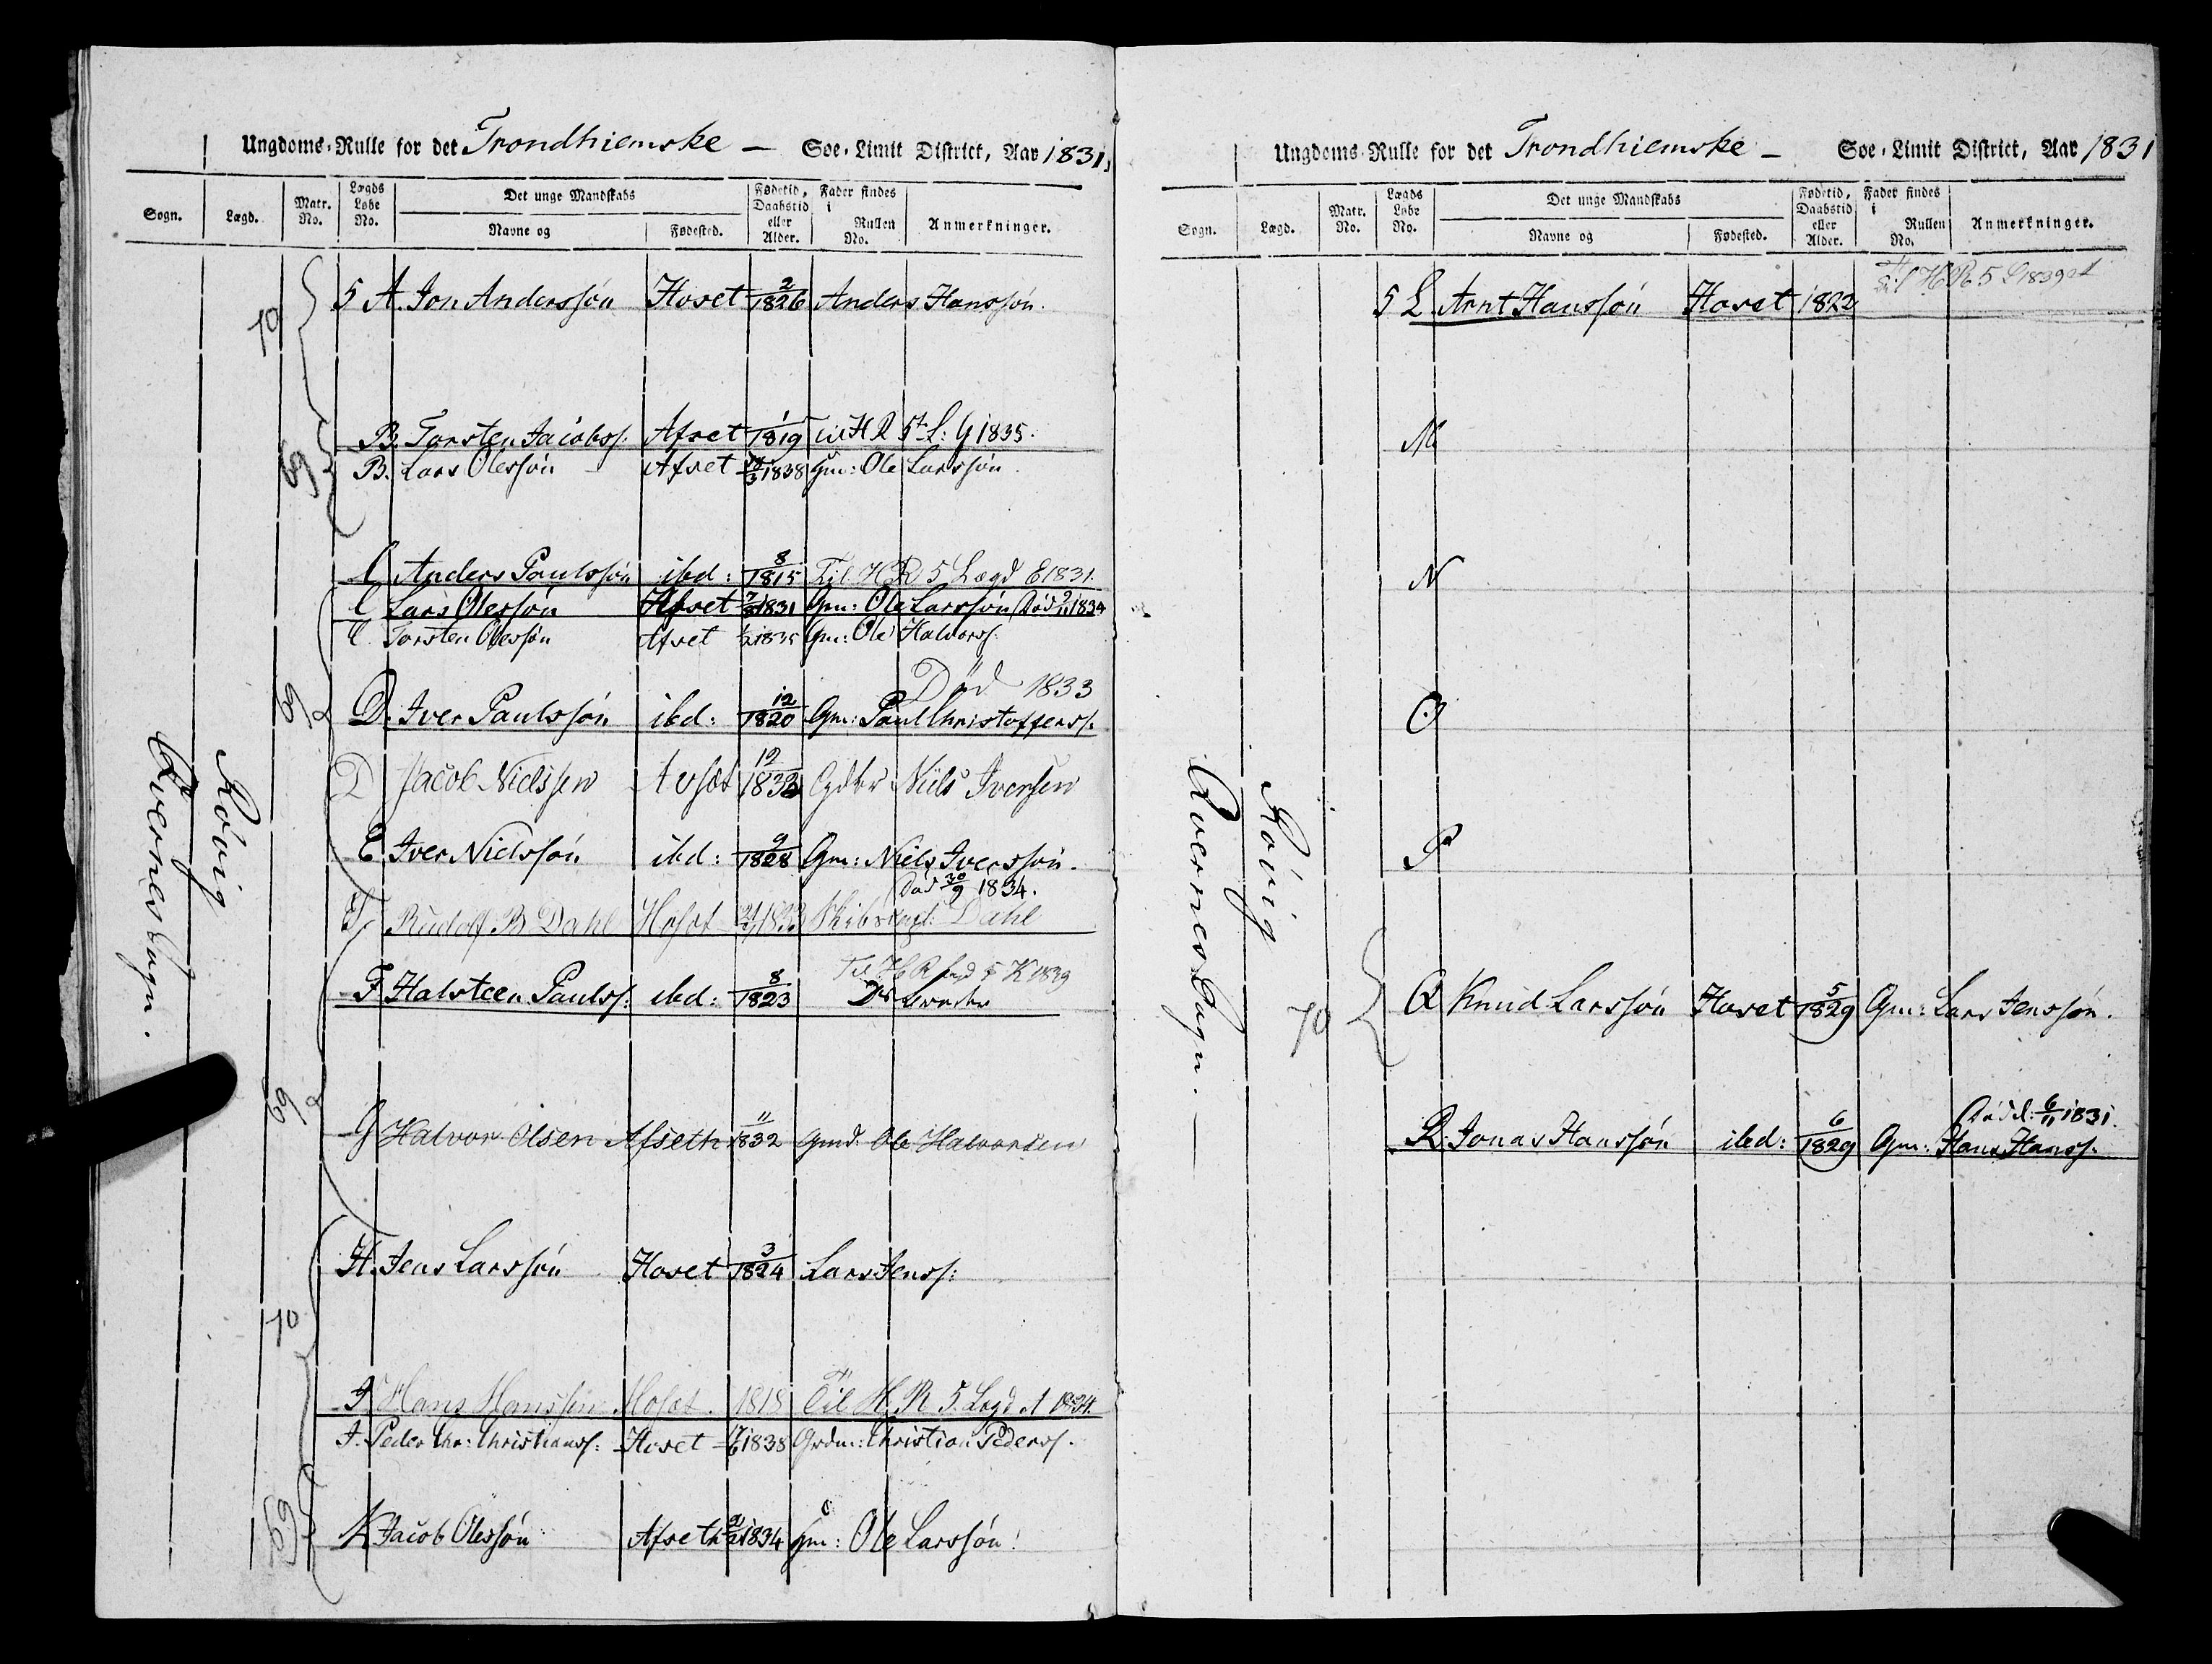 Ungdoms-Rulle for det Trondhiemske — Søe-Limit District, Aar 1831,
Sogn. Lægd. Matr. No. Lægds Løbe No. Det unge Mandskabs Navne og Fødested. Fødetid, Daabstid eller Alder. Fader findes i Rullen No. Anmerkninger.
Qvernes Sogn.
Rövig
70
5 A. Jon Anderssøn Hoset 2/1826 Anders Hanssøn.
69
B. Torsten Jacobss. Afset 1/1819 til H R 5te L: G 1835.
B. Lars Olessøn Afset /3 1838 Gm: Ole Larssøn.
C Anders Paulssøn ibd: 8/1815 Til H R 5 Lægd E 1831.
C Lars Olessøn Afset 1831 Gm: Ole Larssøn Död 9/11 1834
C. Torsten Olessøn Afset 1835 Gm: Ole Halvorss.
69
Död 1833
D. Iver Paulssøn ibd: 12/1820 Gm: Paul Christofferss.
D Jacob Nielssen Avset 12/1832 Niels Iversen
E Iver Nielssøn ibd: 9/1828 Gm: Niels Iverssøn.
Död 30/9 1834.
F Rudolf B Dahl Hoset Skibs Dahl
Til H R Lægd 5 K 1839
F Halsteen Paulss: ibd: 8/1823
69
G Halvor Olsen Afseth 11/1832 Gmd. Ole Halvorsen
H. Jens Larssøn Hoset 3/1824 Lars Jenss:
70
J Hans Hanssøn Hoset. 1818 Til H. R 5. Lægd A 1834.
J. Peder Chr: Christianss: Hoset 1838 Grdm: Christian Pederss.
69
K Jacob Olessøn Afseth 1834 Gm: Ole Larssøn.
Ungdoms-Rulle for det Trondhiemske — Søe-Limit District, Aar 1831
Sogn. Lægd. Matr. No. Lægds Løbe No. Det unge Mandskabs Navne og Fødested. Fødetid, Daabstid eller Alder. Fader findes i Rullen No. Anmerkninger.
Qvernes Sogn. —
Rövig
5 L. Arnt Hanssøn Hoset 1822 Til H R 5 L 1839
M
N
O
P
70
Q Knud Larssøn Hoset 5/1829 Gm: Lars Jenssøn.
Död d: 6/11 1831.
R. Jonas Hanssøn ibd: 6/1829 Gm: Hans Hanss.